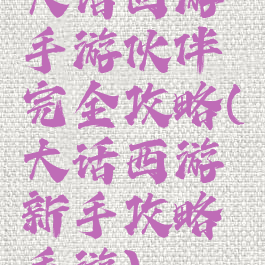 大话西游
手游伙伴
完全攻略(
大话西游
新手攻略
手游)